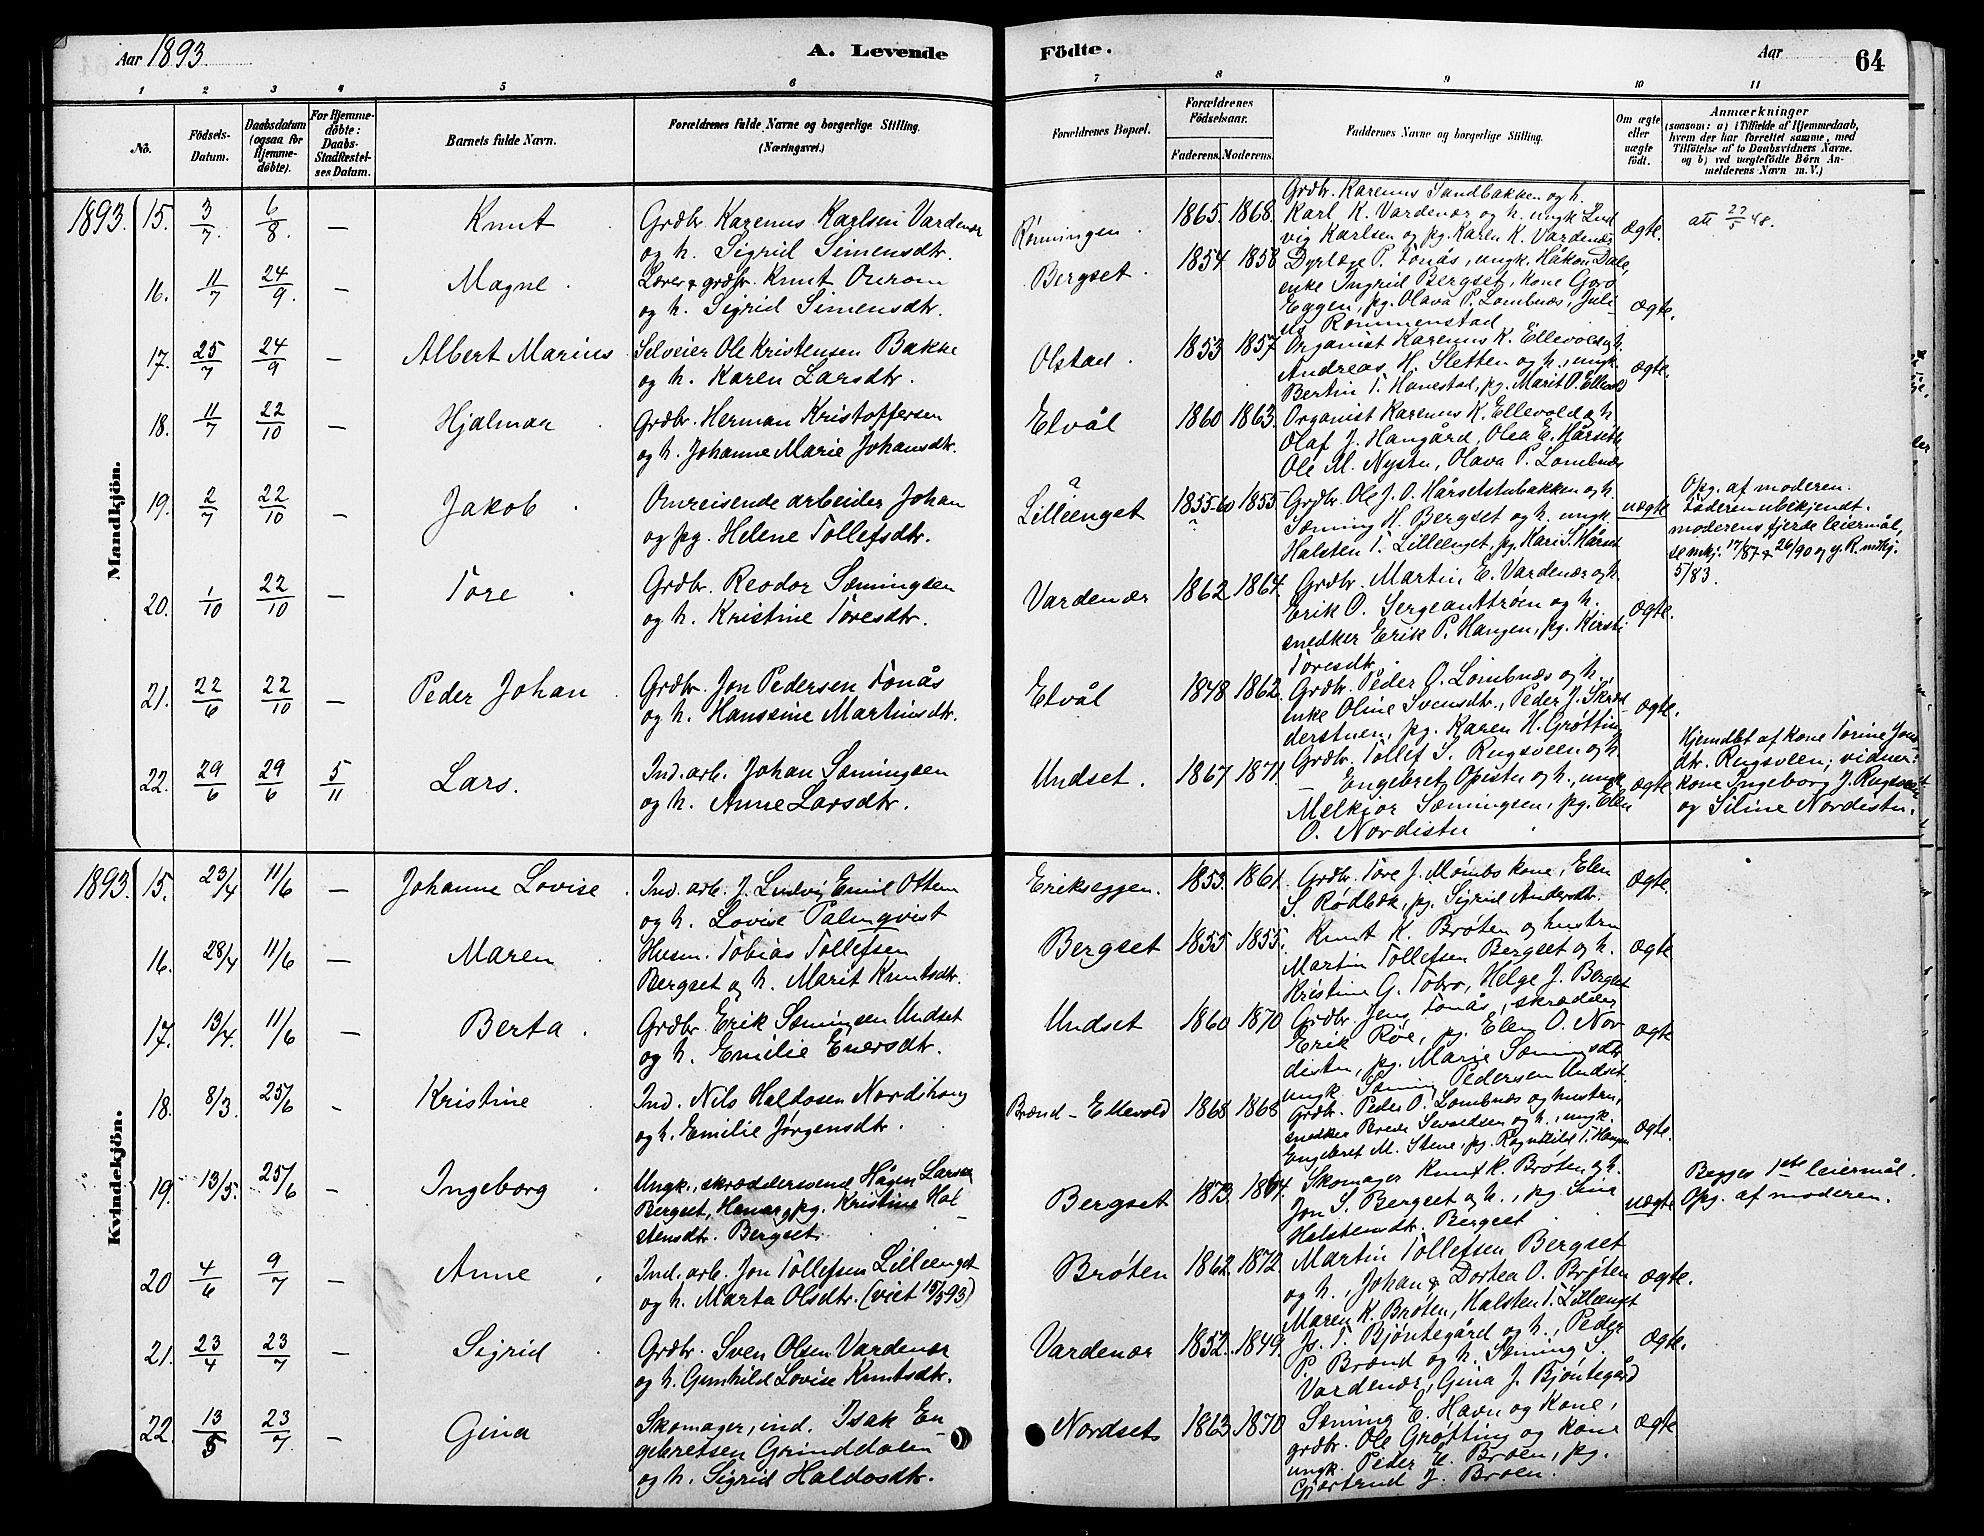 Aar 1893.
A. Levende
Födte.
Aar
64
1 2 3 4 5 6 7 8 9 10 11
No.
Födsels-
Datum.
Daabsdatum
(ogsaa for
Hjemme-
døbte).
For Hjemme-
døbte:
Daabs-
Stadfæstel-
ses Datum.
Barnets fulde Navn.
Forældrenes fulde Navne og borgerlige Stilling.
(Næringsvei.)
Forældrenes Bopæl.
Forældrenes
Födselsaar.
Faderens. Moderens.
Faddernes Navne og borgerlige Stilling.
Om ægte
eller
uægte
født.
Anmærkninger
(saasom: a) i Tilfælde af Hjemmedaab,
hvem der har forrettet samme, med
Tilföielse af to Daabsvidners Navne.
og b) ved uægtefödte Börn An-
melderens Navn m. V.)
Mandkjön.
1893. 15. 3/7 6/8. — Knut
Grdbr. Karenus Karlsen Vardenær
og h. Sigrid Simensdtr.
Rønningen. 1865. 1868.
Grdbr. Karenus Sandbakken og h.
Karl K. Vardenær og h. ungk. Lud
vig Karlsen og pg. Karen K. Vardenær
ægte. att 27/5 48.
16. 11/7 24/9. — Magne.
Lærer & grdbr. Knut
og h. Sigrid Simensdtr.
Bergset. 1854 1858
Dyrlæge P. Tonås, ungk. Håkon Dale,
enke Ingrid Bergset, kone Goro
Eggen, pg. Olava P. Lombnæs, Juli-
us Rommenstad
ægte.
17. 25/7 24/9 — Albert Marius
Selveier Ole Kristensen Bakke
og h. Karen Larsdtr.
Olstad. 1853 1857
Organist Karenus K. Ellevold og h.
Andreas H. Sletten og h., ungk.
Bertin T. Hanestad, pg. Marit O. Ellevold
ægte.
18. 11/7 22/10 — Hjalmar
Grdbr. Herman Kristoffersen
og h. Johanne Marie Johansdtr.
Elvål 1860 1863.
Organist Karenus K. Ellevold og h.
Olaf J. Hangård, Olea E. Hårseth
Ole M. Nystu, Olava P. Lombnæs
19. 2/7 22/10 — Jakob.
Omreisende arbeider Johan
og pg. Helene Tollefsdtr.
Lilleenget 1855-60 ? 1855.
Grdbr. Ole J. O. Hårsetstubakken og h.
Sæming H. Bergset og h. ungk.
Halsten T. Lilleenget, pg. Kari S. Hårset
uægte
Opg. af moderen.
Faderen ubekjendt.
moderens fjerde leiermål,
se mkj. 17/87 & 26/90 og y. R. mkj.
5/83.
20. 1/10 22/10 — Tore
Grdbr. Reodor Sæmingsen
og h. Kristine Toresdtr.
Vardenær 1862 1864.
Grdbr. Martin E. Vardenær og h.
Erik O. Sergeanttrøen og h.
snedker Erik P. Hangen, pg. Kirsti
Toresdtr.
ægte.
21. 22/6 22/10 — Peder Johan
Grdbr. Jon Pedersen Tonås
og h. Hanssine Martinsdtr.
Elvål 1848 1862.
Grdbr. Peder O. Lombnæs og h.,
enke Oline Svensdtr., Peder J. Skræd
derstuen, pg. Karen H. Grøtting
ægte.
22. 29/6 29/6 5/11 Lars.
Ind. arb. Johan Sæmingsen
og h. Anne Larsdtr.
Undset. 1867 1871.
Grdbr. Tollef S. Rugsveen og h
— Engebret Opistu og h., ungk
Melkior Sæmingsen, pg. Elen
O. Nordistu
ægte
Hjemdbt af kone Torine Jons
dtr. Rugsveen; vidner:
kone Ingeborg J. Rugsveen
og Siline Nordistu.
Kvindekjön.
1893. 15. 23/4 11/6 — Johanne Lovise.
Ind. arb. J. Ludvig Emil Ottem
og h. Lovise Palmqvist
Erikseggen. 1853. 1861.
Grdbr. Tore J. Mombs kone, Elen
S. Rødbæk, pg. Sigrid Andersdtr.
ægte.
16. 28/4 11/6 — Maren.
Husm. Tobias Tollefsen
Bergset og h. Marit Knutsdtr.
Bergset 1855 1855.
Knut K. Brøten og hustru
Martin Tollefsen Bergset og h.
Kristine G. Tobro, Helge J. Bergset
ægte
17. 13/4. 11/6 — Berta.
Grdbr. Erik Sæmingsen Undset
og h. Emilie Enersdtr.
Undset 1860 1870
Grdbr. Jens Tonås, skrædder
Erik Røe, pg. Elen O. Nor
distu, pg. Marie Sæmingsdtr
ungk. Sæming Pedersen Undset.
ægte
18. 8/3. 25/6 — Kristine
Ind. Nils Haldosen Nordihoug
og h. Emilie Jørgensdtr.
Brænd-Ellevold 1868 1868
Grdbr. Peder O. Lombnæs og hustru,
snedker Brede Sivaldsen og h., ungk.
Engebret M. Stene, pg. Ragnhild T. Hangen
ægte.
19. 13/5. 25/6 — Ingeborg.
Ungk., skræddersvend Hågen Larsen
Bergset, Hamar, pg. Kristine Hal-
stensdtr. Bergset.
Bergset 1873. 1864.
Skomager Knut K. Brøten og h.
Jon S. Bergset og h., pg. Sina
Halstensdtr. Bergset
uægte
Begges 1ste leiermål.
Opg. af moderen.
20 4/6 9/7 — Anne
Ind. arb. Jon Tollefsen Lilleenget
og h. Marta Olsdtr. (viet 15/5 93)
Brøten 1862. 1872.
Martin Tollefsen Bergset
og h., Johan & Dortea O. Brøten
Maren K. Brøten, Halsten T. Lilleenget
ægte.
21. 23/4 23/7 — Sigrid
Grdbr. Sven Olsen Vardenær
og h. Gunhild Lovise Knutsdtr.
Vardenær 1852. 1849.
Js. T. Bjøntegård og h., Peder
P. Brænd og h. Sæming S.
Vardenær, Gina J. Bjøntegård
ægte.
22. 13/5 23/7 — Gina
Skomager, ind. Isak En-
gebretsen Grinddalen
og h. Sigrid Haldosdtr.
Nordset 1863 1870
Sæming E. Havn og Kone,
grdbr. Ole Grøtting og kone
ungk. Peder E. Broen, pg.
Gjertrud J. Broen.
ægte